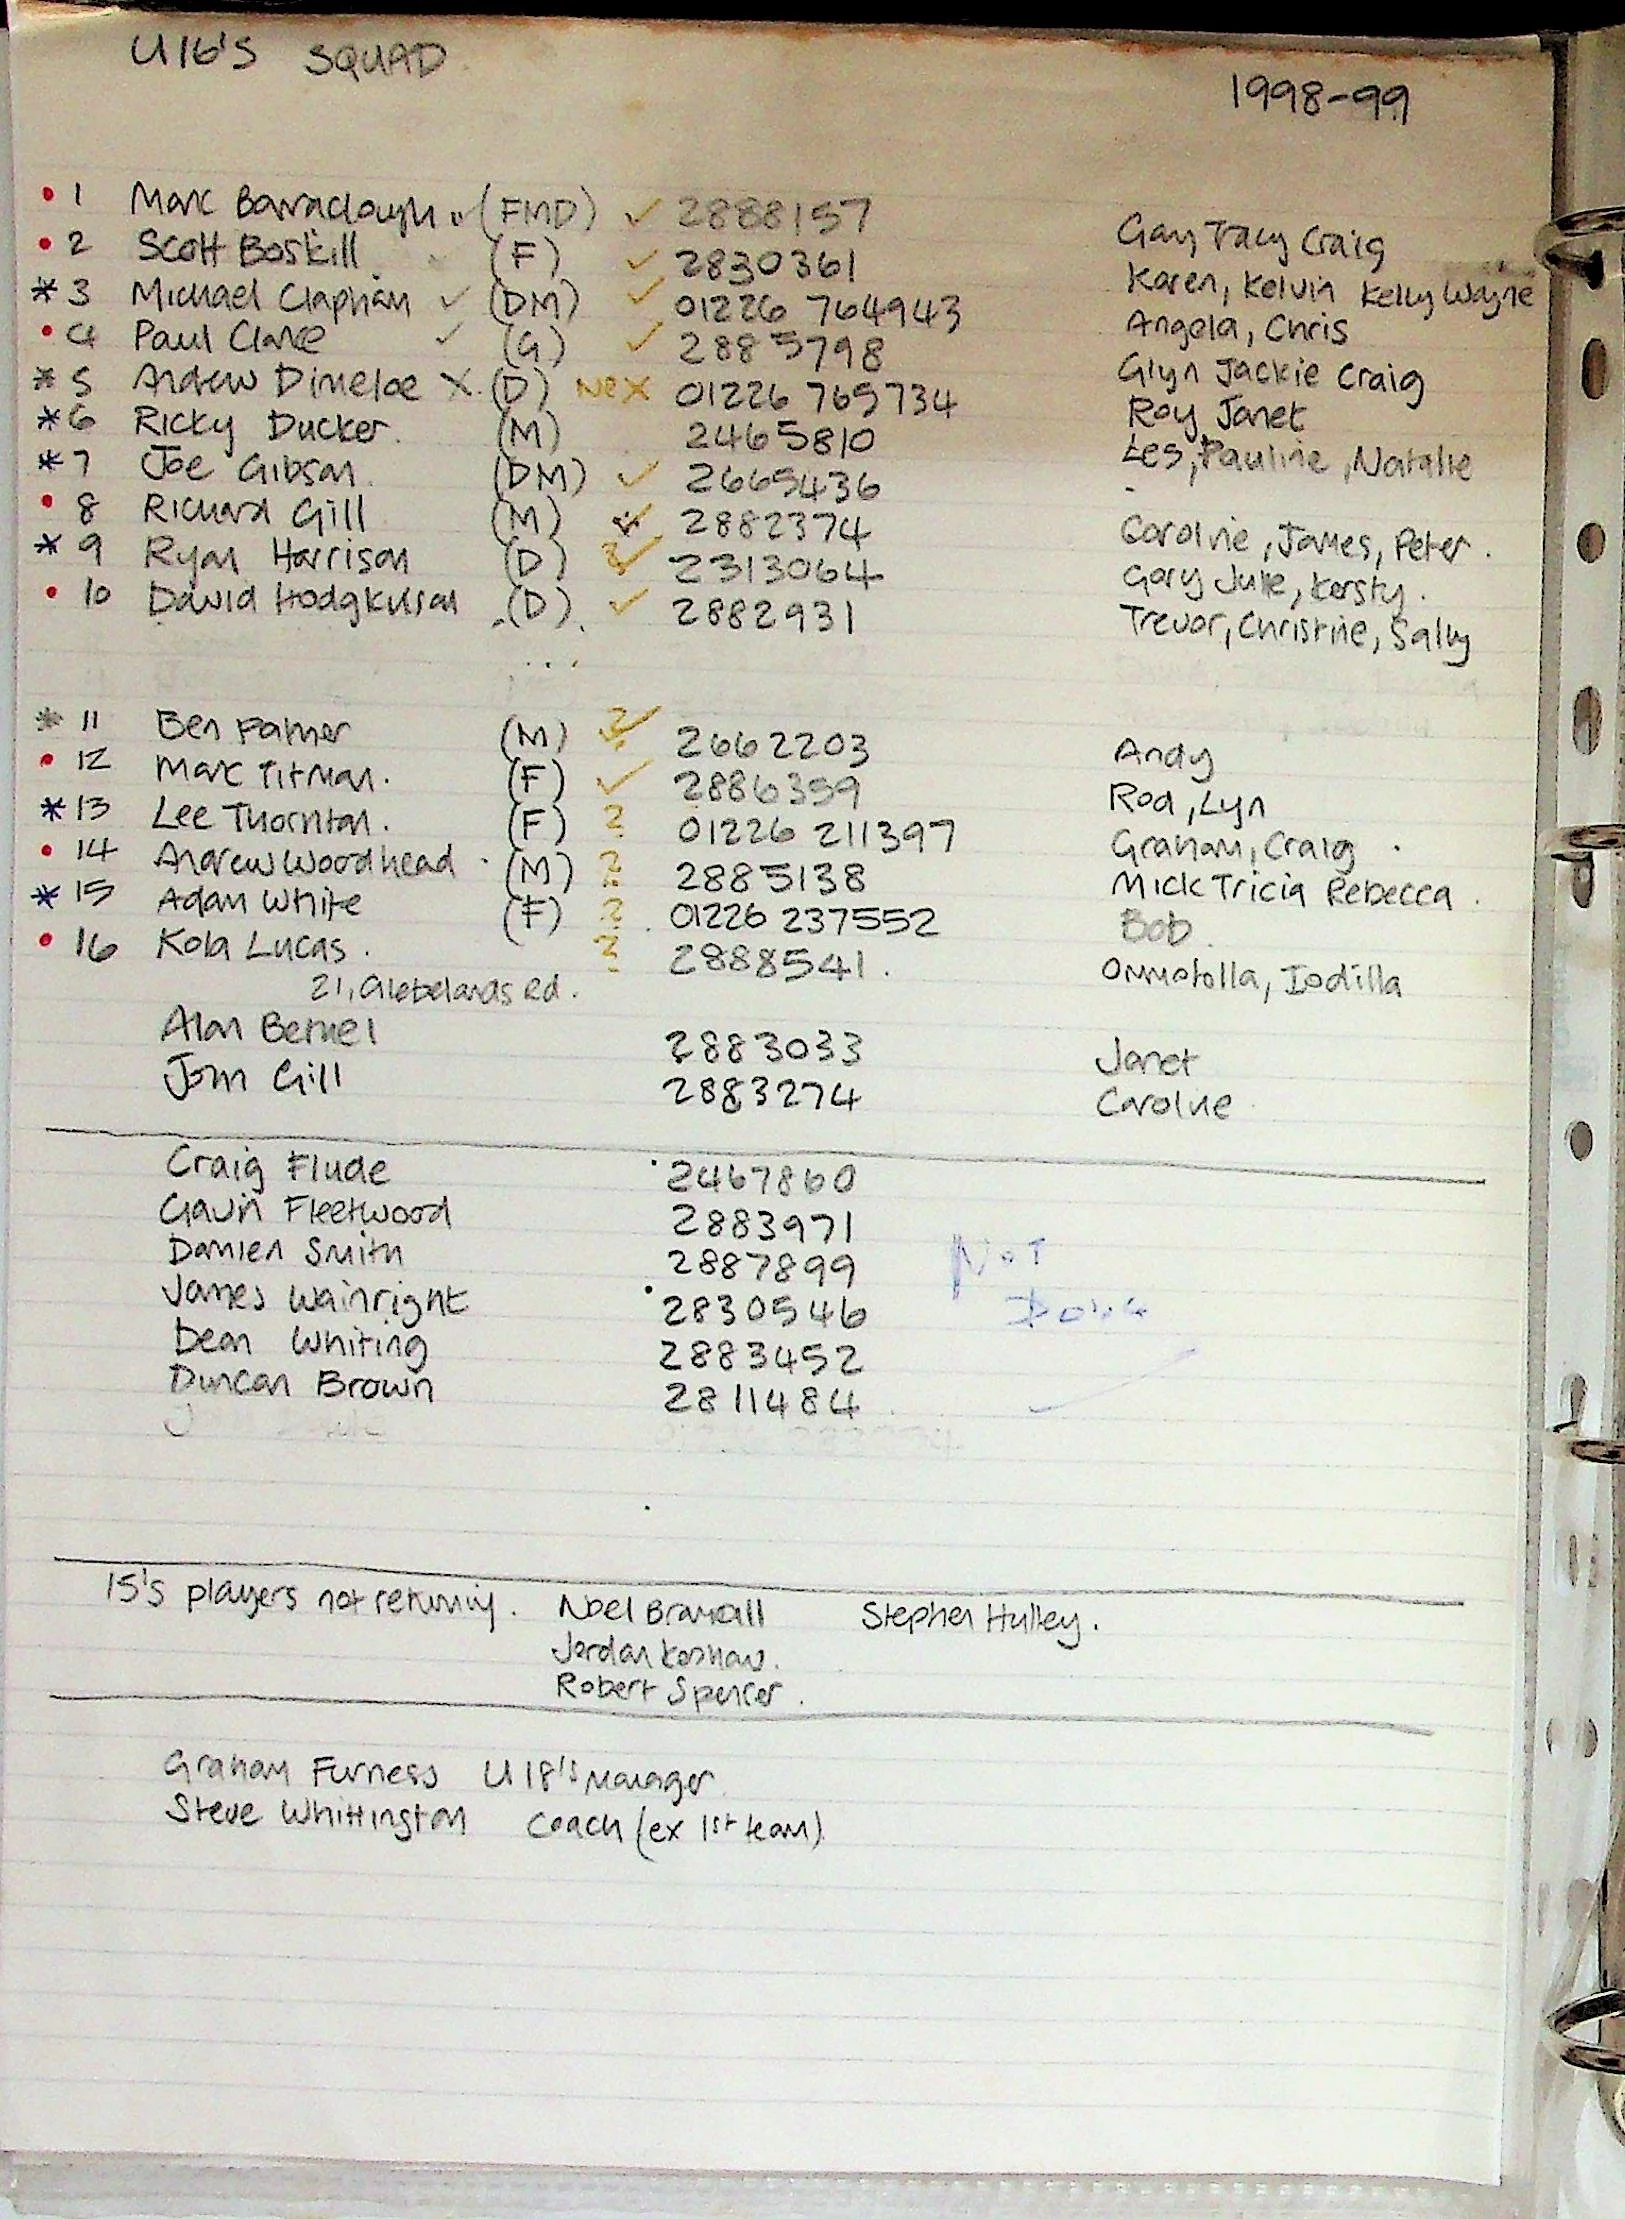 U16's SQUAD
1998-99
• 1 Marc Barraclough (FMD) ✓ 2888157 Gary Tracy Craig
• 2 Scott Boskill (F) ✓ 2830361 Karen, Kelvin Kelly Wayne
* 3 Michael Clapham ✓ (DM) ✓ 01226 764943 Angela, Chris
• 4 Paul Clarke ✓ (G) ✓ 2885798 Glyn Jackie Craig
* 5 Andrew Dimeloe X (D) X 01226 765734 Roy Janet
* 6 Ricky Ducker. (M) 2465810 Les, Pauline, Natalie
* 7 Joe Gibson. (DM) ✓ 2665436 -
• 8 Richard Gill (M) ✓ 2882374 Caroline, James, Peter.
* 9 Ryan Harrison (D) ✓ 2313064 Gary Julie, Kersty.
• 10 David Hodgkinson (D) ✓ 2882931 Trevor, Christine, Sally
* 11 Ben Palmer (M) ?✓ 2662203 Andy
• 12 Marc Titman. (F) ✓ 2886359 Rod, Lyn
* 13 Lee Thornton. (F) ? 01226 211397 Graham, Craig
• 14 Andrew Woodhead (M) ? 2885138 Mick Tricia Rebecca.
* 15 Adam White (F) ? 01226 237552 Bob.
• 16 Kola Lucas. ? 2888541. Ommotolla, Iodilla
21, Glebelands Rd.
Alan Bernel 2883033 Janet
John Gill 2883274 Caroline
Craig Flude 2467860
Gavin Fleetwood 2883971
Damien Smith 2887899 Not
James Wainright 2830546 Done
Dean Whiting 2883452
Duncan Brown 2811484
15's players not returning. Noel Bramall Stephen Hulley.
Jordan Kershaw.
Robert Spencer.
Graham Furness U18's Manager
Steve Whittington Coach (ex 1st team)